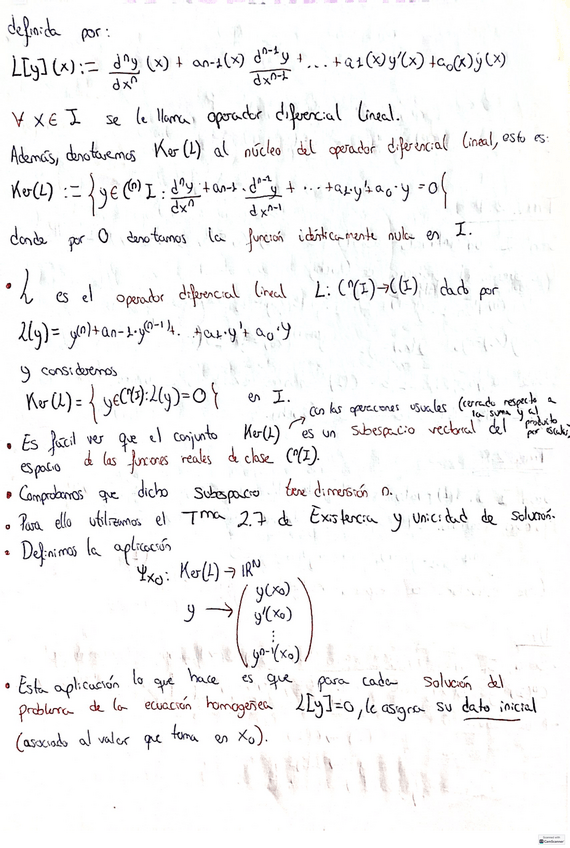 definida por:
L[y](x) := dⁿy/dxⁿ (x) + an-1(x) dⁿ⁻¹y/dxⁿ⁻¹ + ... + a1(x)y'(x) + a₀(x)y(x)
∀ x ∈ I se le llama operador diferencial lineal.
Además, denotaremos Ker(L) al núcleo del operador diferencial lineal, esto es:
Ker(L) := { y ∈ C⁽ⁿ⁾ I : dⁿy/dxⁿ + an-1 · dⁿ⁻¹y/dxⁿ⁻¹ + ... + a1·y' + a₀·y = 0 }
donde por 0 denotamos la función idénticamente nula en I.
• L es el operador diferencial lineal L: Cⁿ(I) → C(I) dado por
L(y) = y⁽ⁿ⁾ + an-1·y⁽ⁿ⁻¹⁾ + ... + a1·y' + a₀·y
y consideremos
Ker(L) = { y ∈ Cⁿ(I) : L(y) = 0 } en I.
con las operaciones usuales (cerrado respecto a la suma y al producto por escalar)
• Es fácil ver que el conjunto Ker(L) es un subespacio vectorial del
espacio de las funciones reales de clase Cⁿ(I).
• Comprobamos que dicho subespacio tiene dimensión n.
• Para ello utilizamos el Tma 2.7 de Existencia y unicidad de solución.
• Definimos la aplicación
Ψx₀: Ker(L) → ℝᴺ
y → ( y(x₀)
y'(x₀)
⋮
yⁿ⁻¹(x₀) )
• Esta aplicación lo que hace es que para cada solución del
problema de la ecuación homogénea L[y]=0, le asigna su dato inicial
(asociado al valor que toma en x₀).
CamScanner